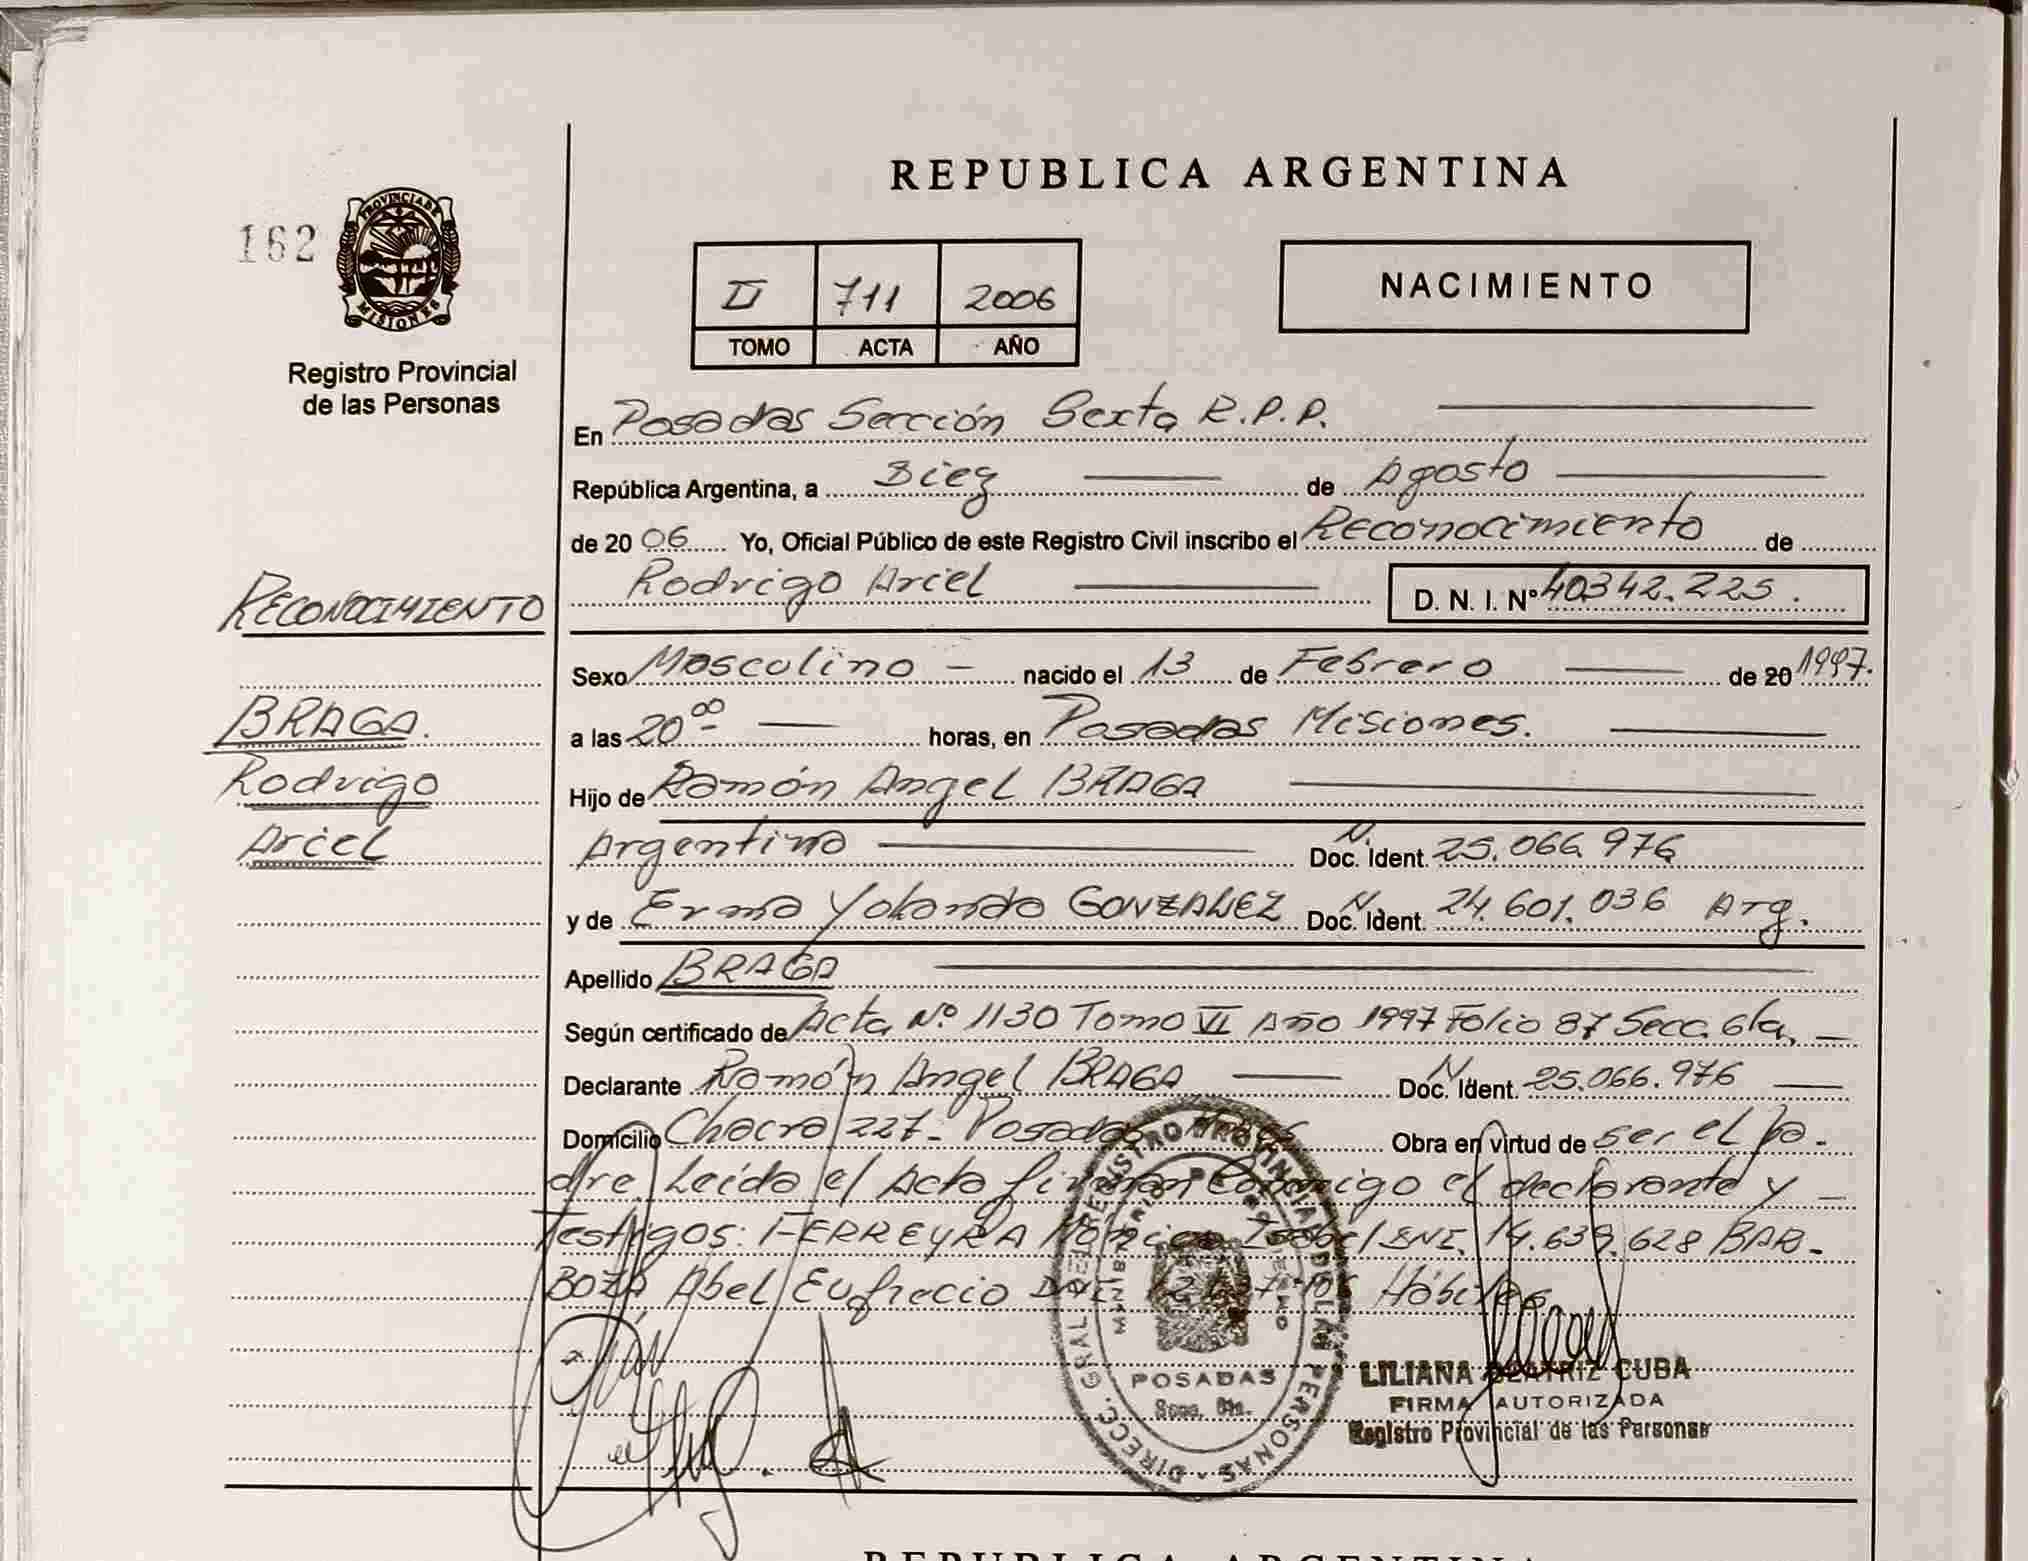 REPUBLICA ARGENTINA
162
PROVINCIA DE
MISIONES
Registro Provincial
de las Personas
II 711 2006
TOMO ACTA AÑO
NACIMIENTO
En Posadas Sección Sexta R.P.P.
República Argentina, a Diez de Agosto
de 2006 Yo, Oficial Público de este Registro Civil inscribo el Reconocimiento de
Rodrigo Ariel D. N. I. Nº 40.342.225.
RECONOCIMIENTO
Sexo Masculino nacido el 13 de Febrero de 20 1997.
BRAGA.
a las 20⁰⁰ horas, en Posadas Misiones.
Rodrigo
Hijo de Ramón Angel BRAGA
Ariel
Argentino N. Doc. Ident. 25.066.976
y de Erma Yolanda GONZALEZ N Doc. Ident. 24.601.036 Arg.
Apellido BRAGA
Según certificado de Acta Nº 1130 Tomo VI Año 1997 Folio 87 Secc. 6ta.
Declarante Ramón Angel BRAGA N Doc. Ident. 25.066.976
Domicilio Chacra 227- Posadas Obra en virtud de ser el pa-
dre. Leída el Acta firman Conmigo el declarante y
Testigos: FERREYRA Mónica Isabel DNI. 14.639.628 BAR-
BOZA Abel Eufrecio DNI Hábiles
DIREC. GRAL DEL REGISTRO PROVINCIAL DE LAS PERSONAS
MINISTERIO DE GOBIERNO
POSADAS
Secc. 6ta.
LILIANA BEATRIZ CUBA
FIRMA AUTORIZADA
Registro Provincial de las Personas
REPUBLICA ARGENTINA